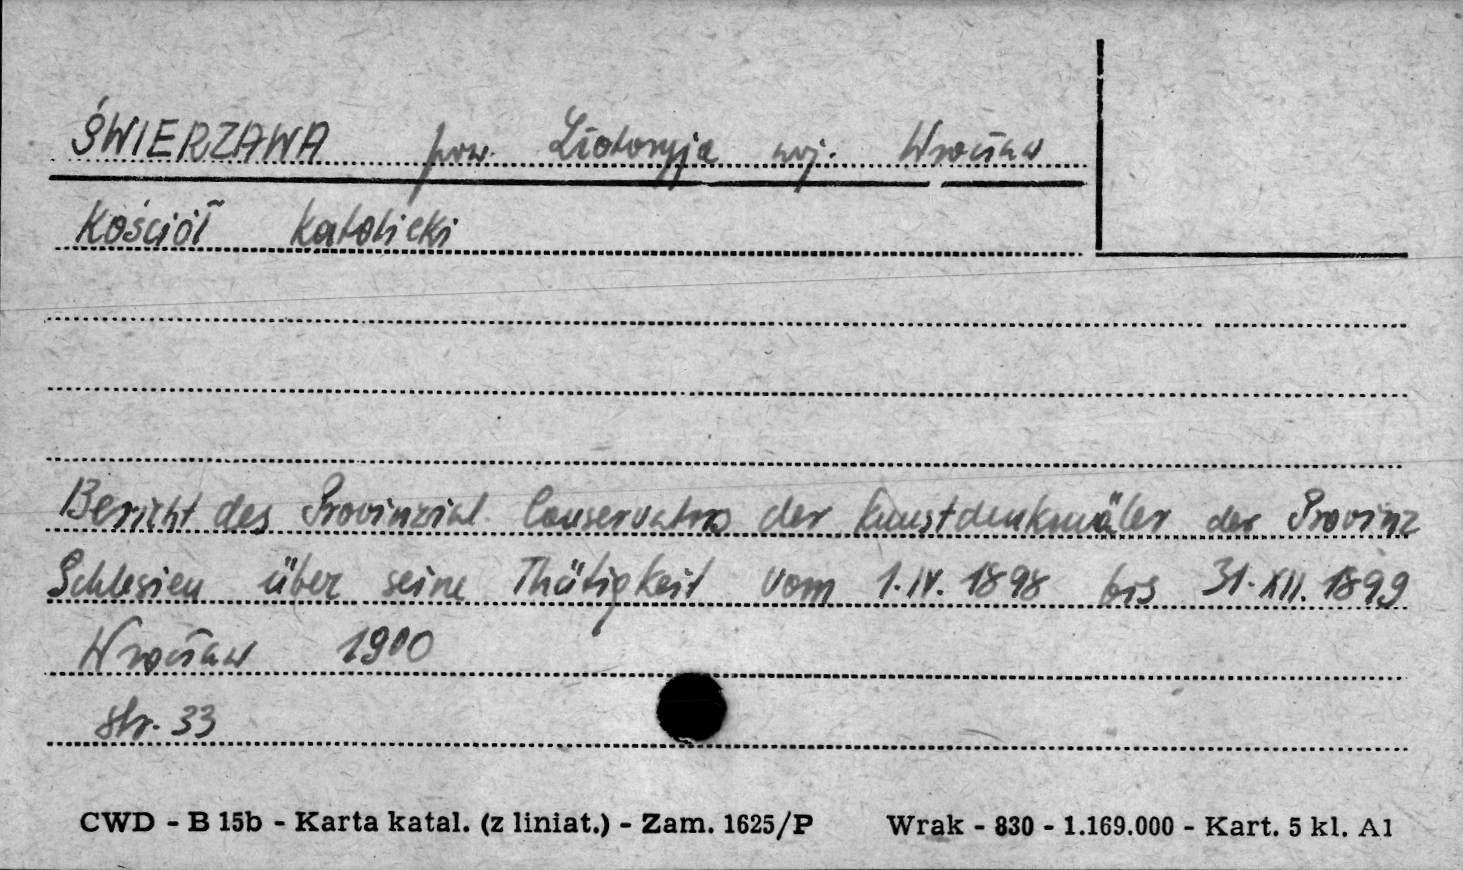 ŚWIERZAWA pow. Złotoryja woj. Wrocław
Kościół Katolicki
Bericht des Provinzial Conservators der Kunstdenkmäler der Provinz
Schlesien über seine Thätigkeit vom 1.IV. 1898 bis 31.XII. 1899
Wrocław 1900
str. 33
CWD - B 15b - Karta katal. (z liniat.) - Zam. 1625/P Wrak - 830 - 1.169.000 - Kart. 5 kl. A1